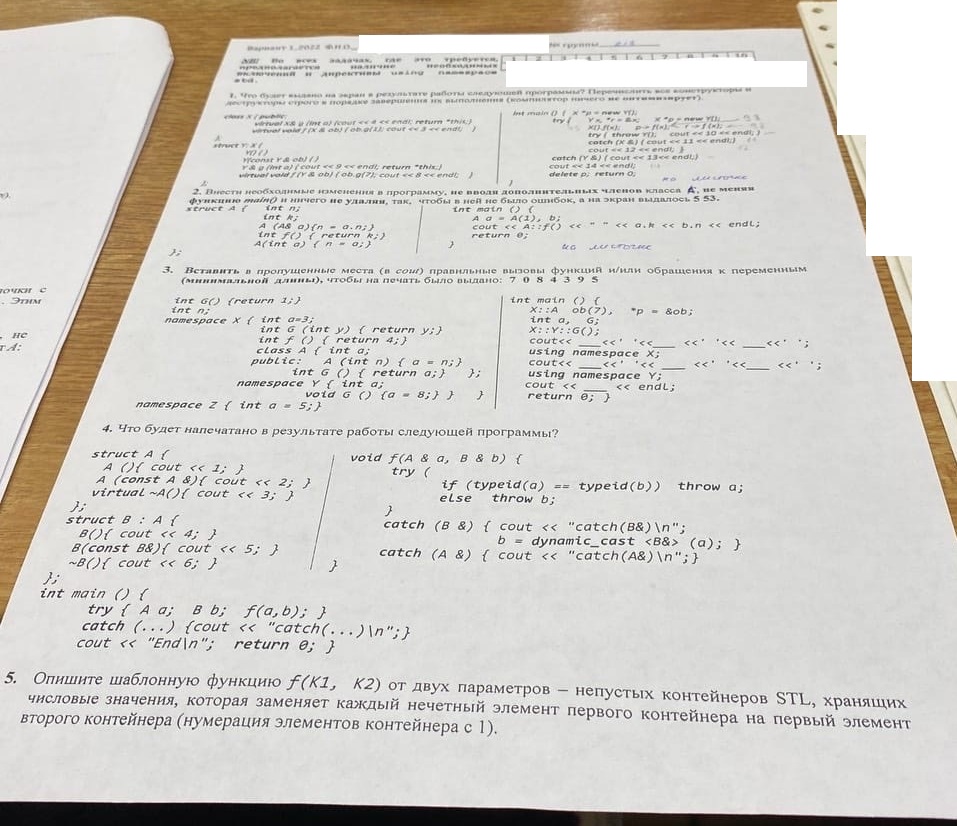 Вариант 1, 2022 Ф.И.О.
№ группы
NB! Во всех задачах, где это требуется,
предполагается наличие необходимых
включений и директивы using namespace
std.
1 2 3 4 5 6 7 8 9 10
1. Что будет выдано на экран в результате работы следующей программы? (Перечислить все конструкторы и
деструкторы строго в порядке завершения их выполнения (компилятор ничего не оптимизирует).
class X { public:
virtual X& g (int a) {cout << 4 << endl; return *this;}
virtual void f (X & ob) { ob.g(1); cout << 3 << endl; }
};
struct Y: X {
Y() { }
Y(const Y & ob) { }
Y & g (int a) { cout << 9 << endl; return *this;}
virtual void f (Y & ob) { ob.g(7); cout << 8 << endl; }
};
int main () { X *p = new Y();
try { Y x, *r = &x; X *p = new Y();
X().f(x); p-> f(x); r -> f (x);
try { throw Y(); cout << 10 << endl; }
catch (X &) { cout << 11 << endl;}
cout << 12 << endl; }
catch (Y &) { cout << 13<< endl;}
cout << 14 << endl;
delete p; return 0;
}
на листочке
2. Внести необходимые изменения в программу, не вводя дополнительных членов класса A, не меняя
функцию main() и ничего не удаляя, так, чтобы в ней не было ошибок, а на экран выдалось 5 53.
struct A { int n;
int k;
A (A& a){n = a.n;}
int f() { return k;}
A(int a) { n = a;}
};
int main () {
A a = A(1), b;
cout << A::f() << " " << a.k << b.n << endl;
return 0;
}
на листочке
3. Вставить в пропущенные места (в cout) правильные вызовы функций и/или обращения к переменным
(минимальной длины), чтобы на печать было выдано: 7 0 8 4 3 9 5
int G() {return 1;}
int n;
namespace X { int a=3;
int G (int y) { return y;}
int f () { return 4;}
class A { int a;
public: A (int n) { a = n;}
int G () { return a;} };
namespace Y { int a;
void G () {a = 8;} } }
namespace Z { int a = 5;}
int main () {
X::A ob(7), *p = &ob;
int a, G;
X::Y::G();
cout<< ___<<' '<<___ <<' '<< ___<<' ';
using namespace X;
cout<< ___<<' '<<___ <<' '<<___ <<' ';
using namespace Y;
cout << ___ << endl;
return 0; }
4. Что будет напечатано в результате работы следующей программы?
struct A {
A (){ cout << 1; }
A (const A &){ cout << 2; }
virtual ~A(){ cout << 3; }
};
struct B : A {
B(){ cout << 4; }
B(const B&){ cout << 5; }
~B(){ cout << 6; }
};
void f(A & a, B & b) {
try {
if (typeid(a) == typeid(b)) throw a;
else throw b;
}
catch (B &) { cout << "catch(B&)\n";
b = dynamic_cast <B&> (a); }
catch (A &) { cout << "catch(A&)\n";}
}
int main () {
try { A a; B b; f(a,b); }
catch (...) {cout << "catch(...)\n";}
cout << "End\n"; return 0; }
5. Опишите шаблонную функцию f(K1, K2) от двух параметров – непустых контейнеров STL, хранящих
числовые значения, которая заменяет каждый нечетный элемент первого контейнера на первый элемент
второго контейнера (нумерация элементов контейнера с 1).
Этим
, не